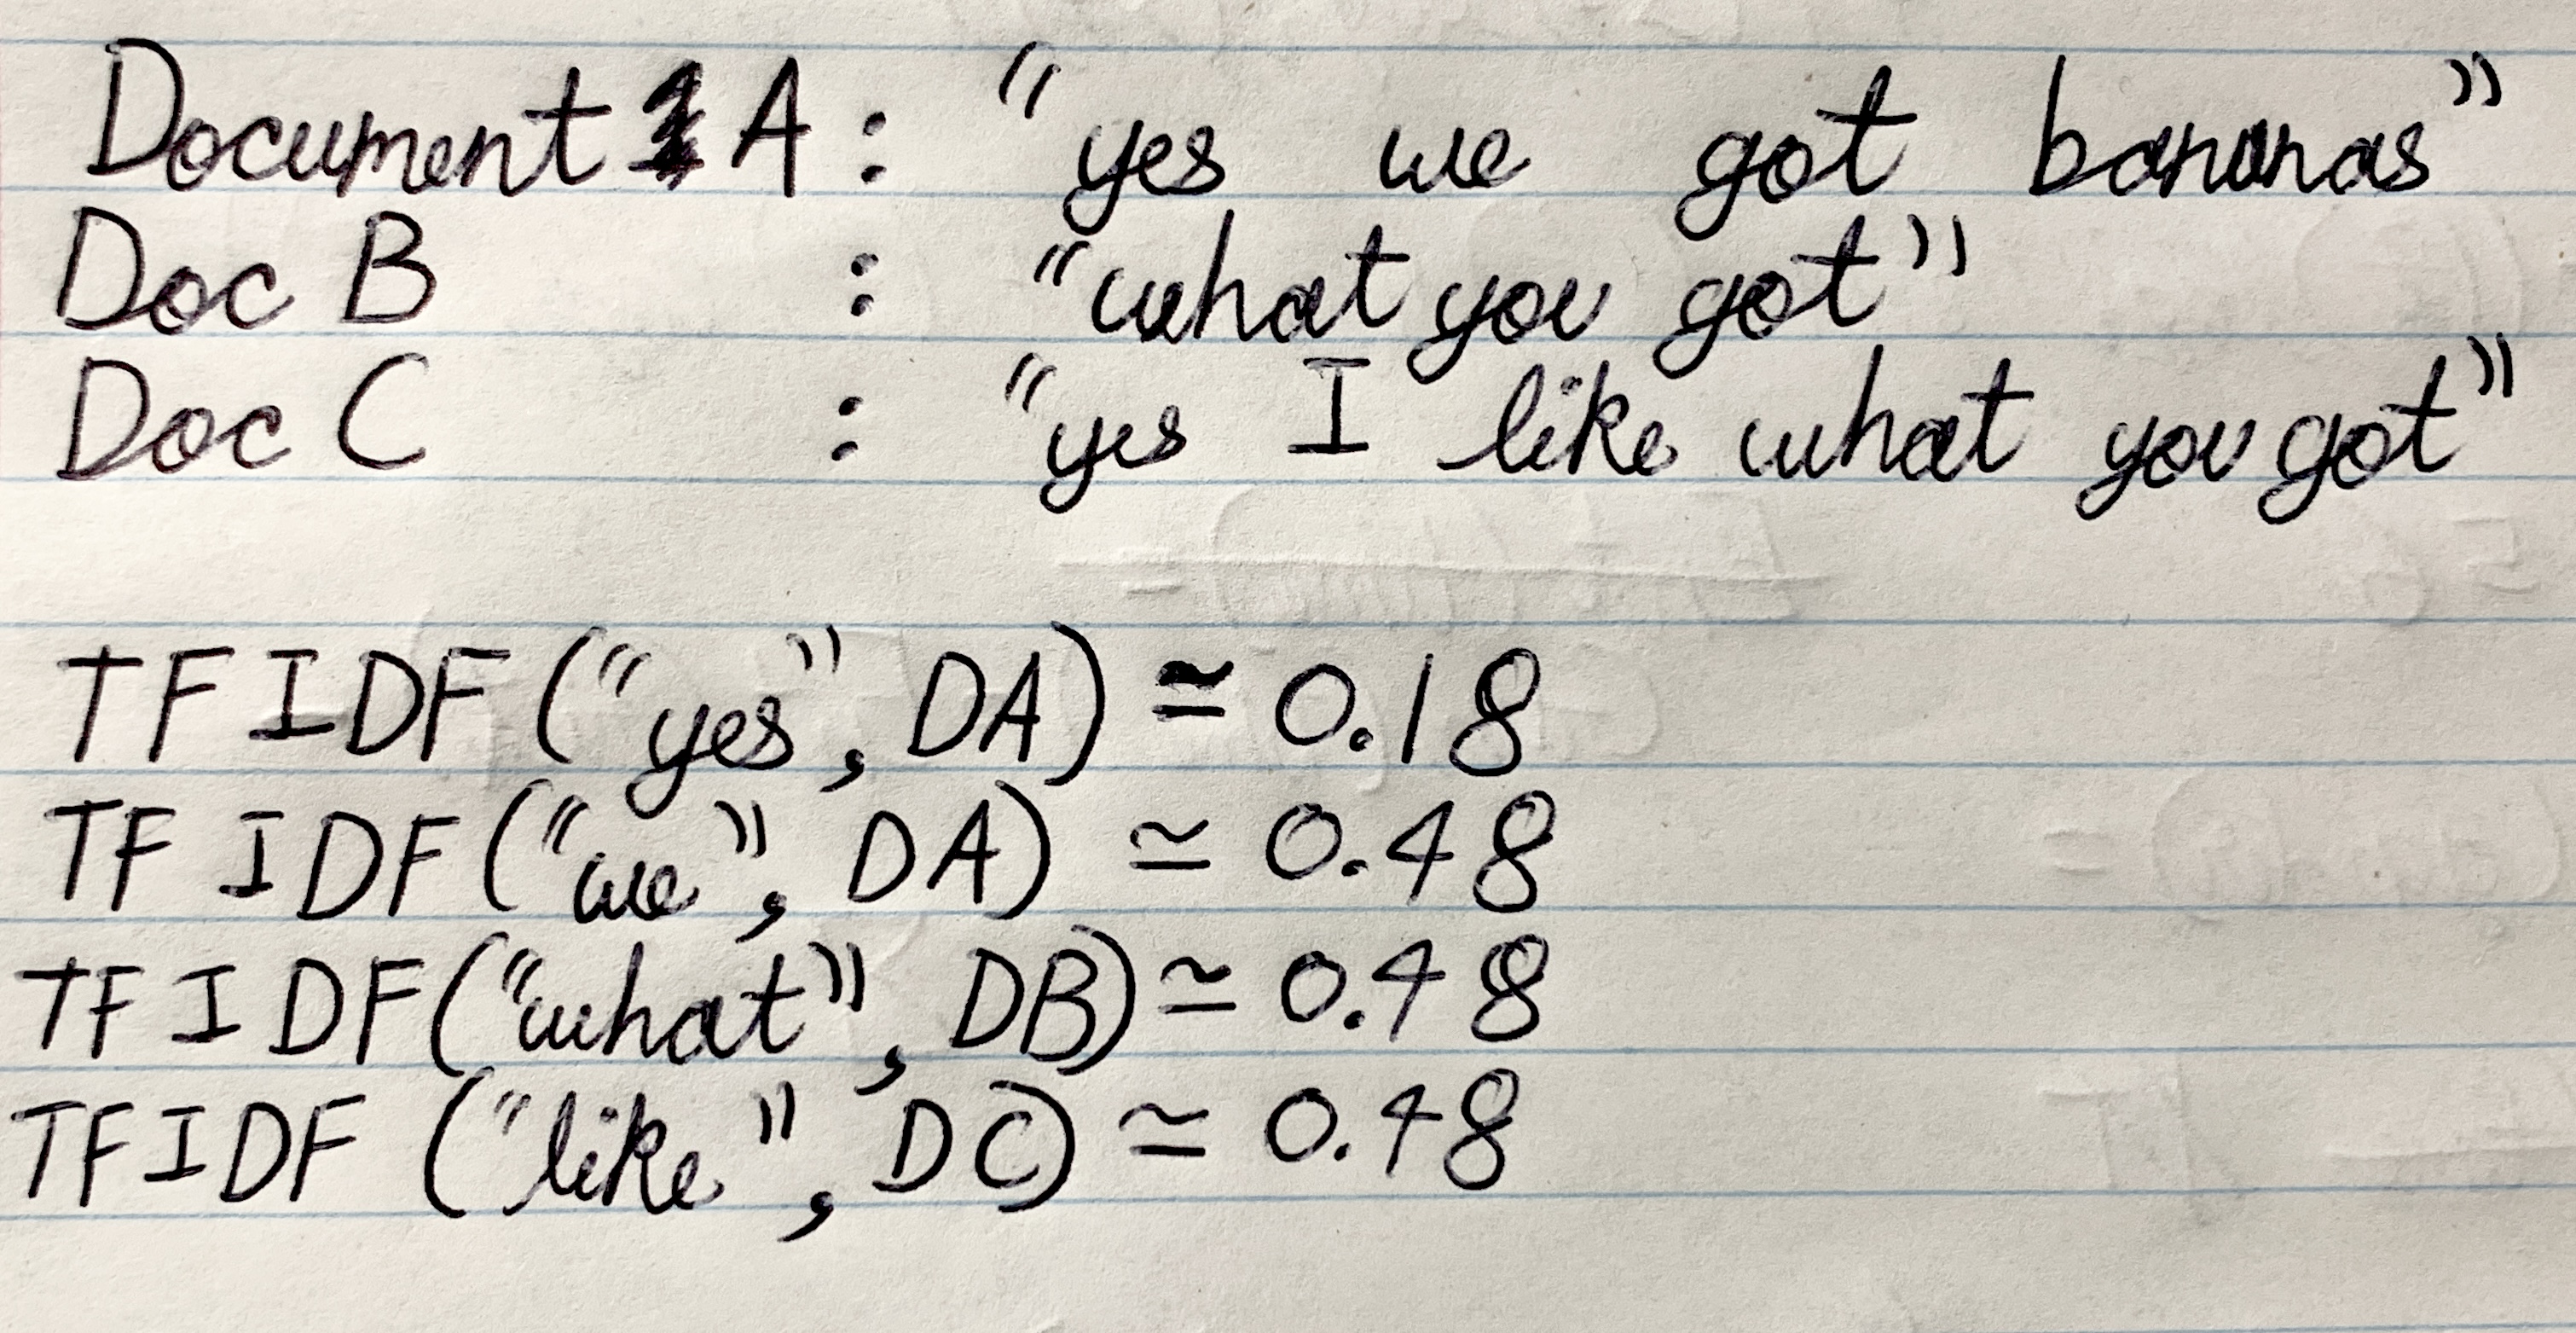 Document A : "yes we got bananas"
Doc B : "what you got"
Doc C : "yes I like what you got"
TF IDF ("yes", DA) ≃ 0.18
TF IDF ("we", DA) ≃ 0.48
TF IDF ("what", DB) ≃ 0.48
TF IDF ("like", DC) ≃ 0.48